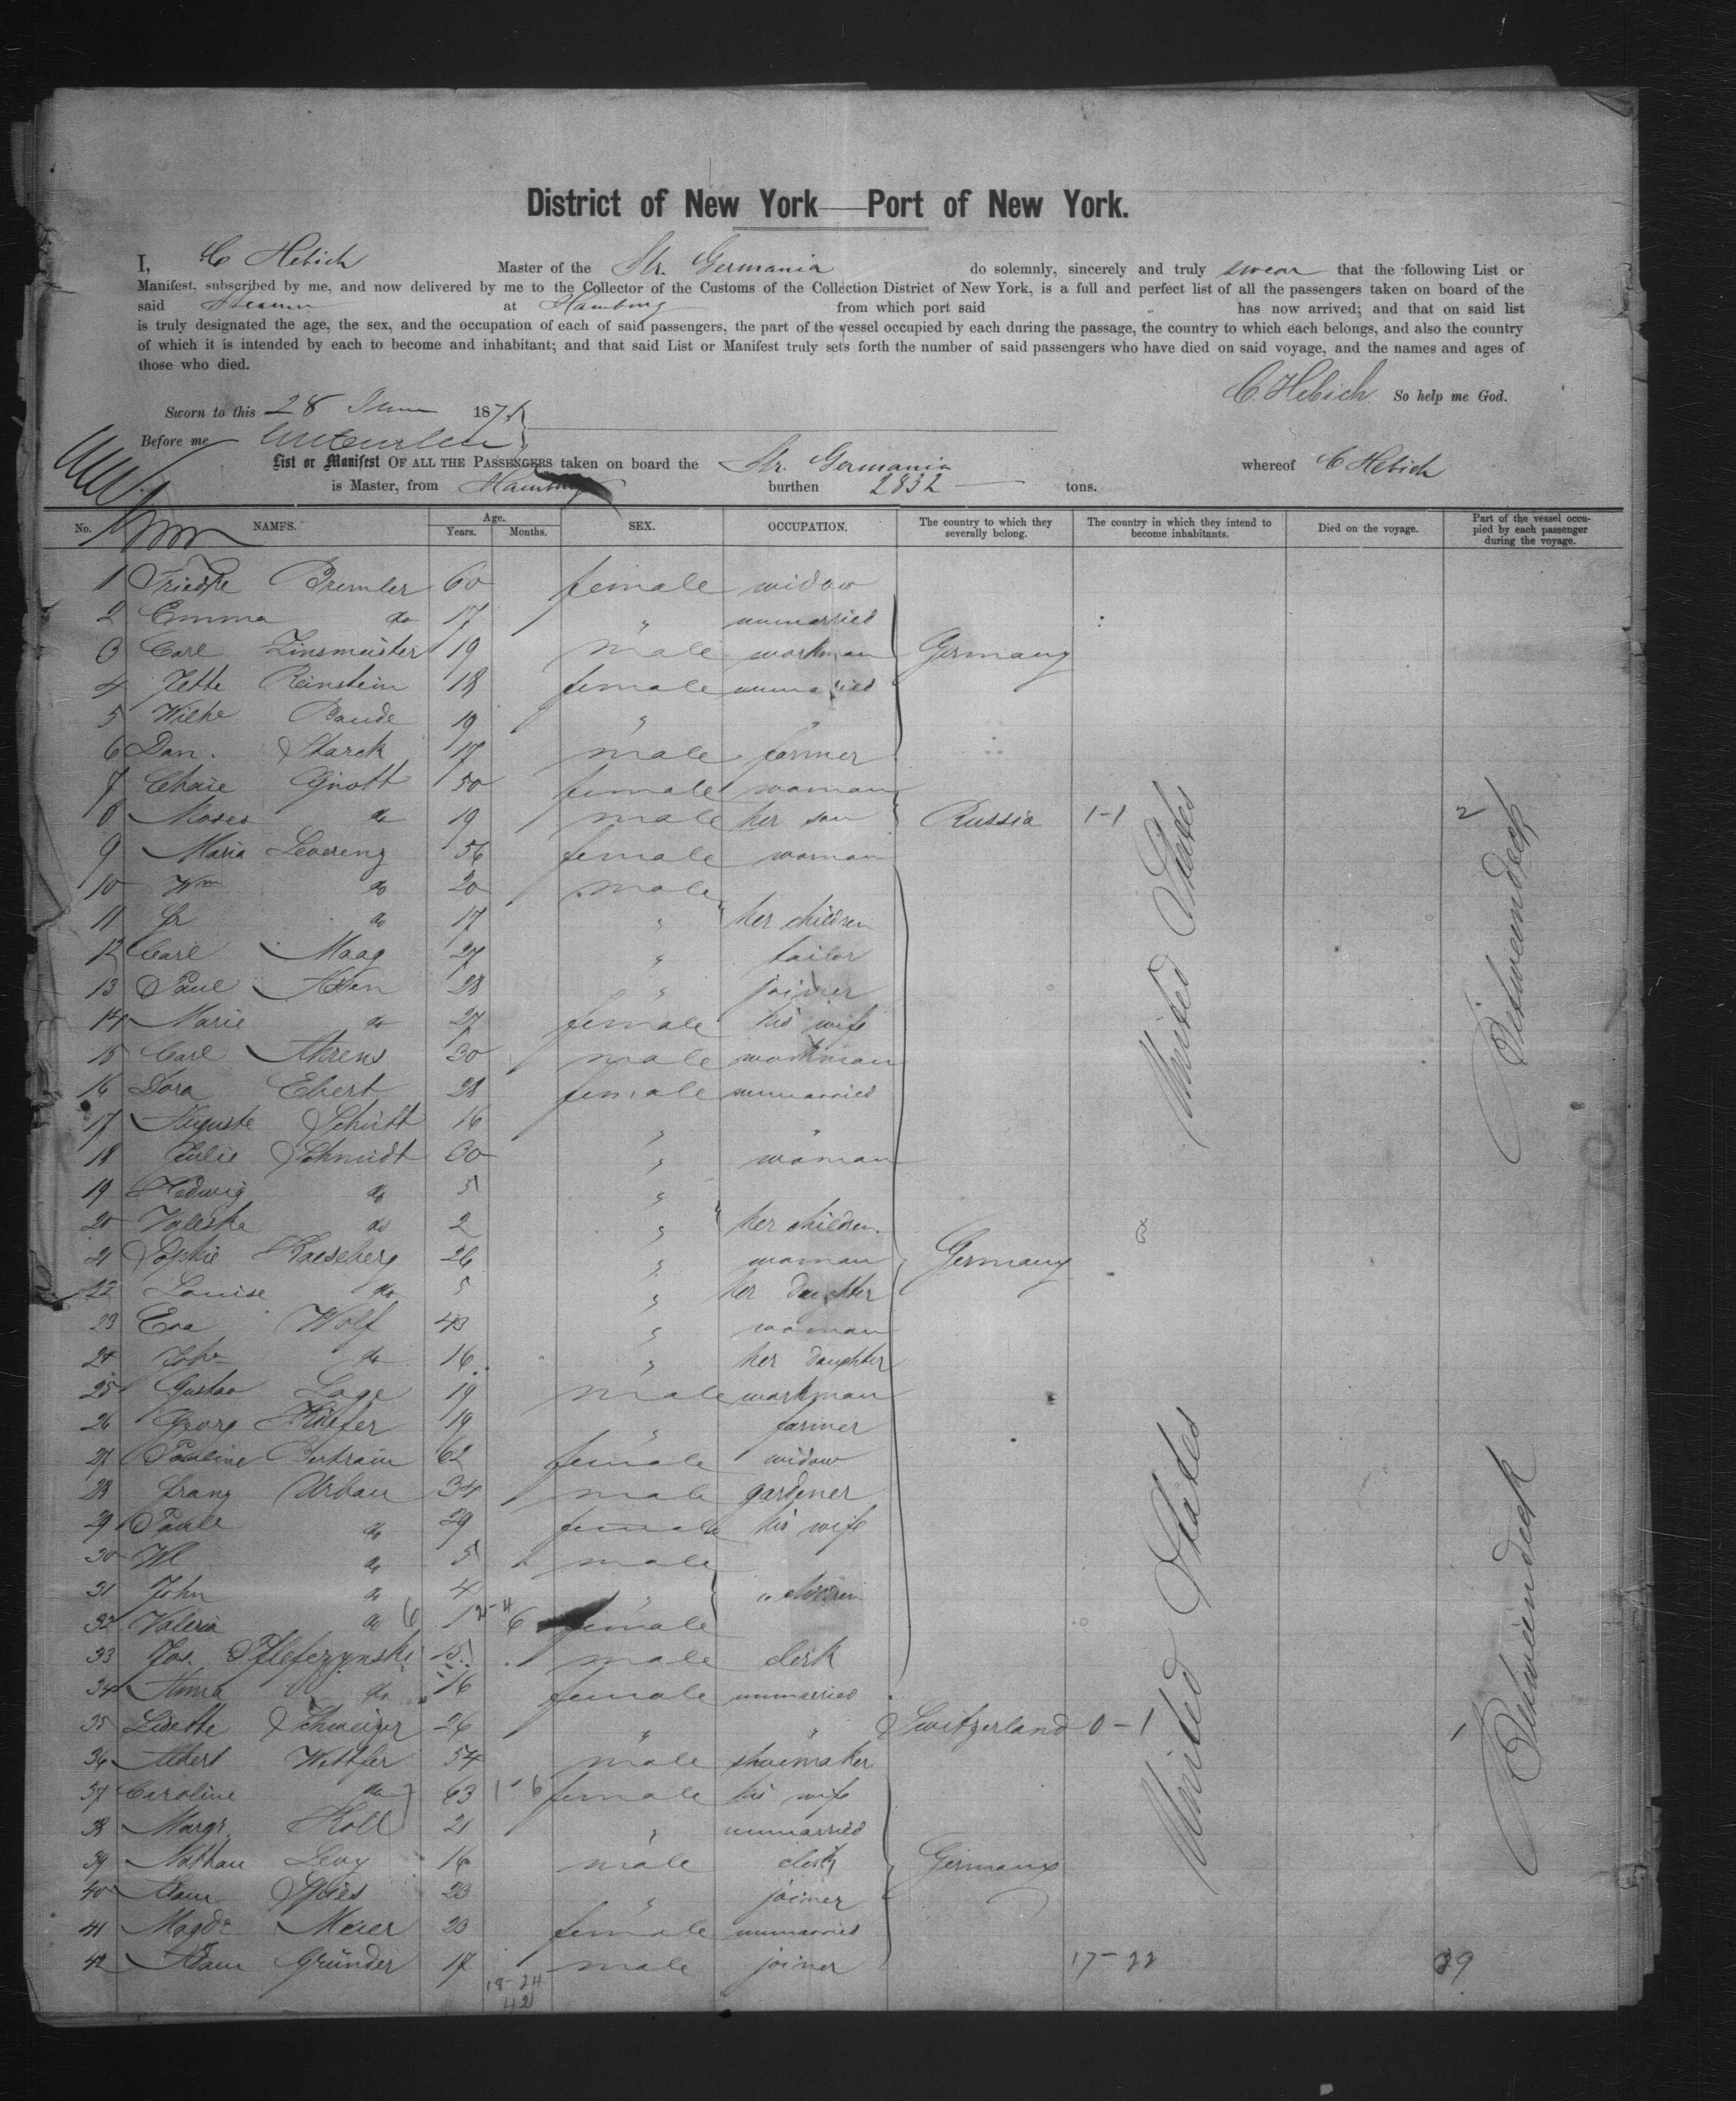 District of New York—Port of New York.
I, C Hebich Master of the Str. Germania do solemnly, sincerely and truly swear that the following List or
Manifest, subscribed by me, and now delivered by me to the Collector of the Customs of the Collection District of New York, is a full and perfect list of all the passengers taken on board of the
said Steamer at Hamburg from which port said " has now arrived; and that on said list
is truly designated the age, the sex, and the occupation of each of said passengers, the part of the vessel occupied by each during the passage, the country to which each belongs, and also the country
of which it is intended by each to become and inhabitant; and that said List or Manifest truly sets forth the number of said passengers who have died on said voyage, and the names and ages of
those who died.
C. Hebich So help me God.
Sworn to this 28 June 187
Before me
List or Manifest OF ALL THE PASSENGERS taken on board the Str. Germania whereof C Hebich
is Master, from Hamburg burthen 2832 — tons.
No. NAMES. Age. Years. Months. SEX. OCCUPATION. The country to which they severally belong. The country in which they intend to become inhabitants. Died on the voyage. Part of the vessel occupied by each passenger during the voyage.
1 Friedke Bremler 60 female widow
2 Emma do 17 " unmarried
3 Carl Zinsmeister 19 male workman Germany
4 Jette Reinstein 18 female unmarried
5 Wilhe Baude 19 " "
6 Dan. Starck 17 male farmer
7 Chaie Gnott 50 female woman
8 Moses do 19 male her son Russia 1-1 2
9 Maria Leverenz 56 female woman
10 Wm do 20 male
11 Fr do 17 " her children
12 Carl Maag 27 " tailor
13 Paul 28 " joiner
14 Marie do 27 female his wife
15 Carl Ahrens 30 male workman
16 Dora Ebert 28 female unmarried
17 Auguste Schütt 16 " "
18 Julie Schmidt 30 " woman
19 Hedwig do 5 "
20 Valeska do 2 " her children
21 Sophie Kaeseberg 26 " woman Germany
22 Louise do 5 " her daughter
23 Eva Wolf 43 " woman
24 Joha do 16 " her daughter
25 Gustav Lage 19 male workman
26 Georg Küefer 19 " farmer
27 Pauline Bertram 62 female widow
28 Franz Urban 34 male gardener
29 Paule do 29 female his wife
30 Wl do 5 male
31 John do 4 " " children
32 Valeria do 6 female
33 Jos. 15 male clerk
34 Anna do 16 female unmarried
35 Lisette Schweizer 26 " " Switzerland 0-1 1
36 Albert Wettfer 54 male shoemaker
37 Caroline do 63 1-6 female his wife
38 Margr. Koll 21 " unmarried
39 Nathan Levy 16 male clerk Germany
40 Adam Spies 23 " joiner
41 Magda Meier 23 female unmarried
42 Adam Gründer 17 male joiner 17-22 39
18-24
42
United States
United States
Zwischendeck
Zwischendeck